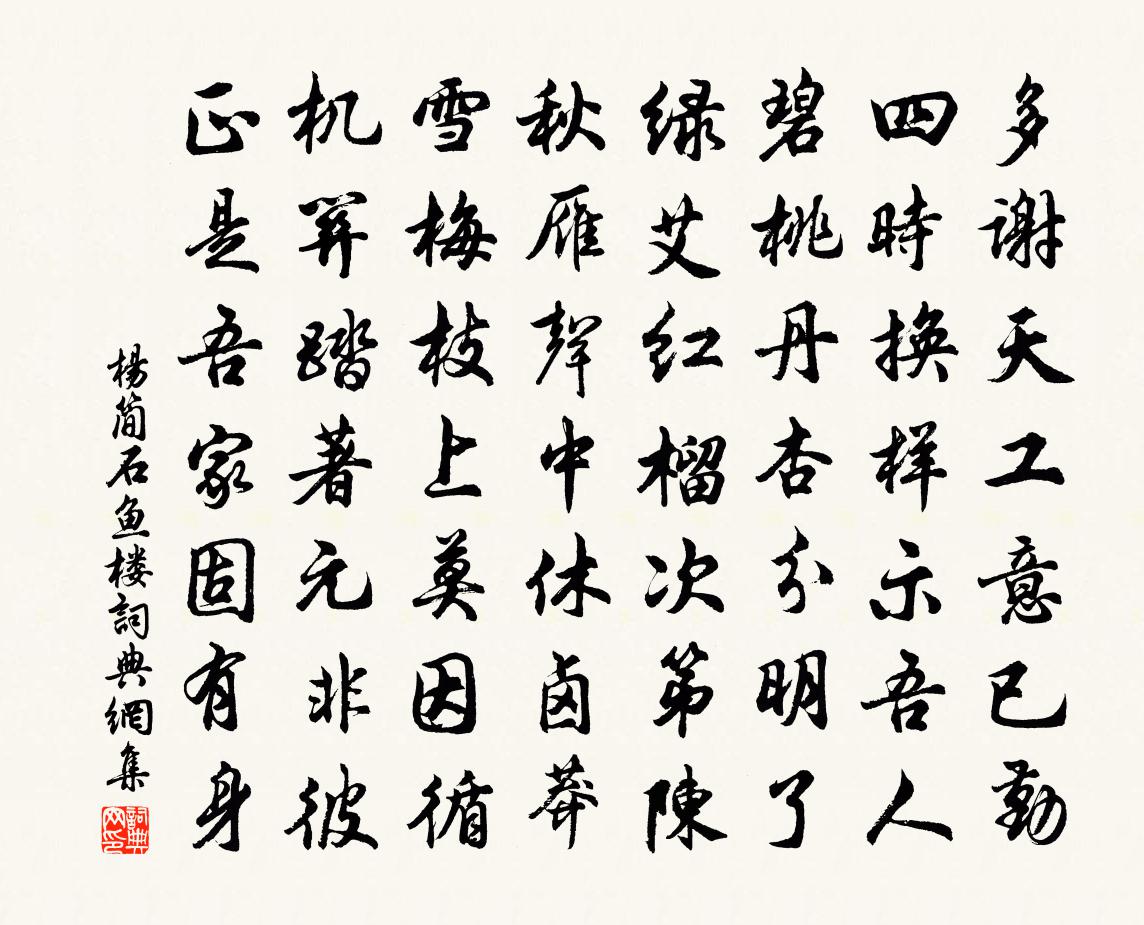 多謝天工意已勤
四時換样示吾人
碧桃丹杏分明了
绿艾红榴次第陳
秋雁聲中休卤莽
雪梅枝上莫因循
机關踏著元非彼
正是吾家固有身
楊简石鱼楼詞典網集
詞典网印